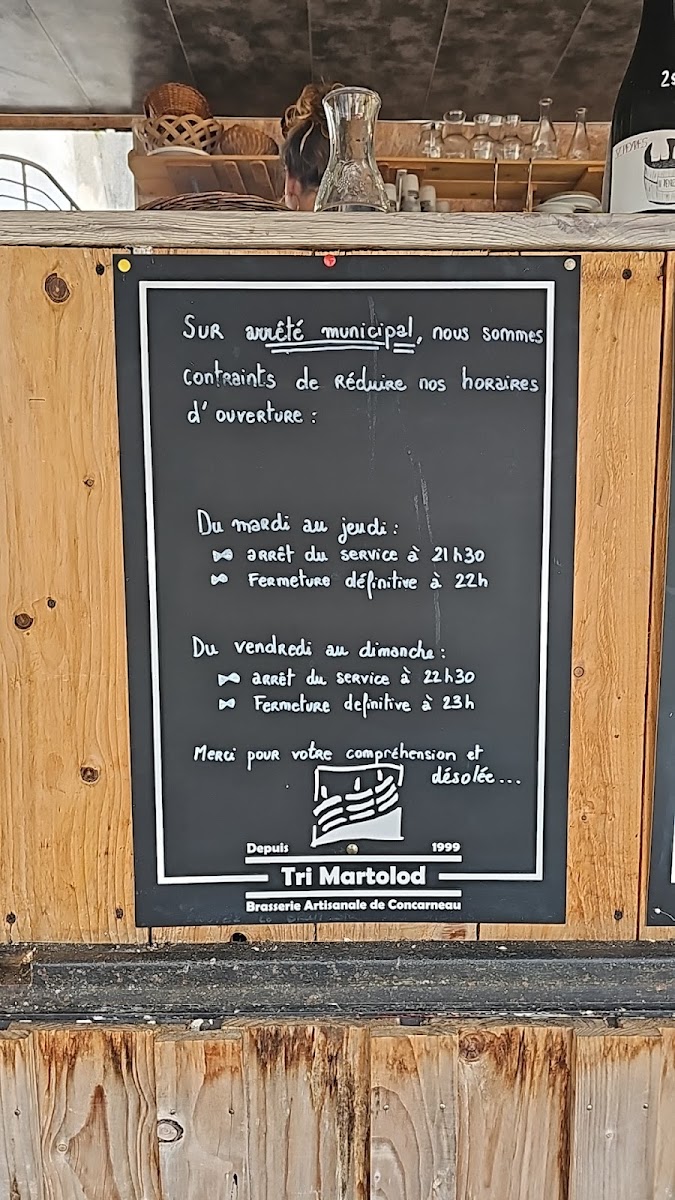 Sur arrêté municipal, nous sommes
contraints de réduire nos horaires
d'ouverture :
Du mardi au jeudi :
arrêt du service à 21h30
Fermeture définitive à 22h
Du vendredi au dimanche :
arrêt du service à 22h30
Fermeture definitive à 23h
Merci pour votre compréhension et
désolée...
Depuis 1999
Tri Martolod
Brasserie Artisanale de Concarneau